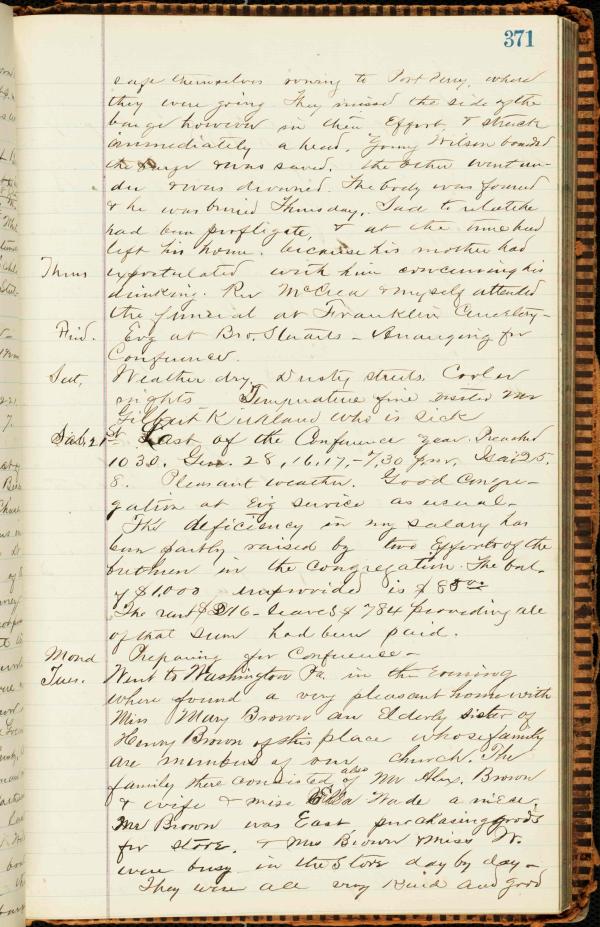 371
safe themselves roning to Port Perry, where
they were going They missed the side of the
barge however in their Effort & struck
immediately a head. Young Wilson boarded
the barge & was saved. the other went un-
der & was drowned. The body was found
& he was buried Thursday. Sad to relate he
had been profligate, & at the time had
left his home. because his mother had
Thurs expostulated with him concerning his
drinking. Rev McCrea & myself attended
the funeral at Franklin Cemetery-
Frid. Evg at Bro. Stuarts - Arranging for
Conference.
Sat, Weather dry. Dusty streets. Cooler
nights Temperature fine visited Mr
Gilbert Kirkland who is sick
Sab. 21st Last of the Conference year. Preached
10 30. Gen. 28, 16, 17, - 7,30 p.m. Isai 25.
8. Pleasant weather. Good congre-
gation at Evg service as usual.
The deficiency in my salary has
been partly raised by two Efforts of the
brethren in the congregation. The bal.
of $1000 unprovided is $88
The rent $216 - leaves $784 providing all
of that sum had been paid.
Mond Preparing for Conference -
Tues. Went to Washington Pa. in the Evening
where found a very pleasant home with
Miss Mary Brown an Elderly sister of
Henry Brown of this place whose family
are members of our church. The
family there consisted also of Mr Alex. Brown
& wife & Miss Ella Wade a niece.
Mr Brown was East purchasing goods
for store. & Mrs Brown & Miss W.
were busy in the Store day by day -
They were all very Kind and good